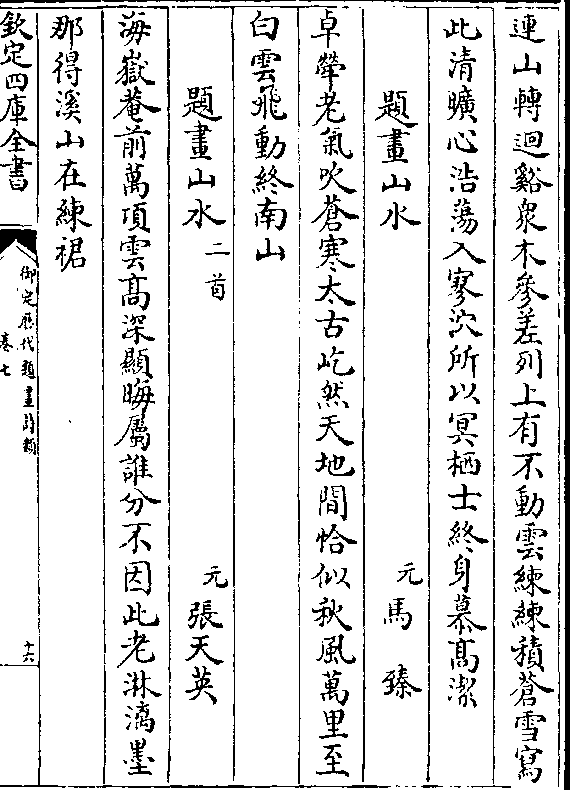 連山轉迴谿衆木參差列上有不動雲練練積蒼雪寫
此清曠心浩蕩入寥泬所以冥栖士終身慕髙潔
題畫山水 元 馬臻
卓犖老氣吹蒼寒太古屹然天地間恰似秋風萬里至
白雲飛動終南山
題畫山水二首 元 張天英
海嶽菴前萬項雲髙深顯晦屬誰分不因此老淋漓墨
那得溪山在練裙
欽定四庫全書
御定歷代題畫詩類
卷七
十六